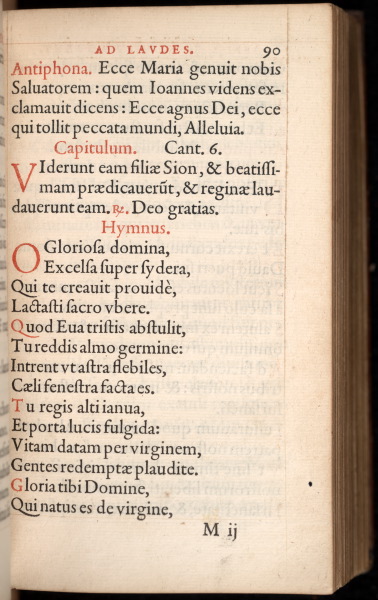 AD LAVDES. 90
Antiphona. Ecce Maria genuit nobis
Saluatorem : quem Ioannes videns ex-
clamauit dicens : Ecce agnus Dei, ecce
qui tollit peccata mundi, Alleluia.
Capitulum. Cant. 6.
VIderunt eam filiæ Sion, & beatiſſi-
mam prædicauerũt, & reginæ lau-
dauerunt eam. ℟. Deo gratias.
Hymnus.
O Glorioſa domina,
Excelſa ſuper ſydera,
Qui te creauit prouidè,
Lactaſti ſacro vbere.
Quod Eua triſtis abſtulit,
Tu reddis almo germine:
Intrent vt aſtra flebiles,
Cæli feneſtra facta es.
Tu regis alti ianua,
Et porta lucis fulgida:
Vitam datam per virginem,
Gentes redemptæ plaudite.
Gloria tibi Domine,
Qui natus es de virgine,
M ij